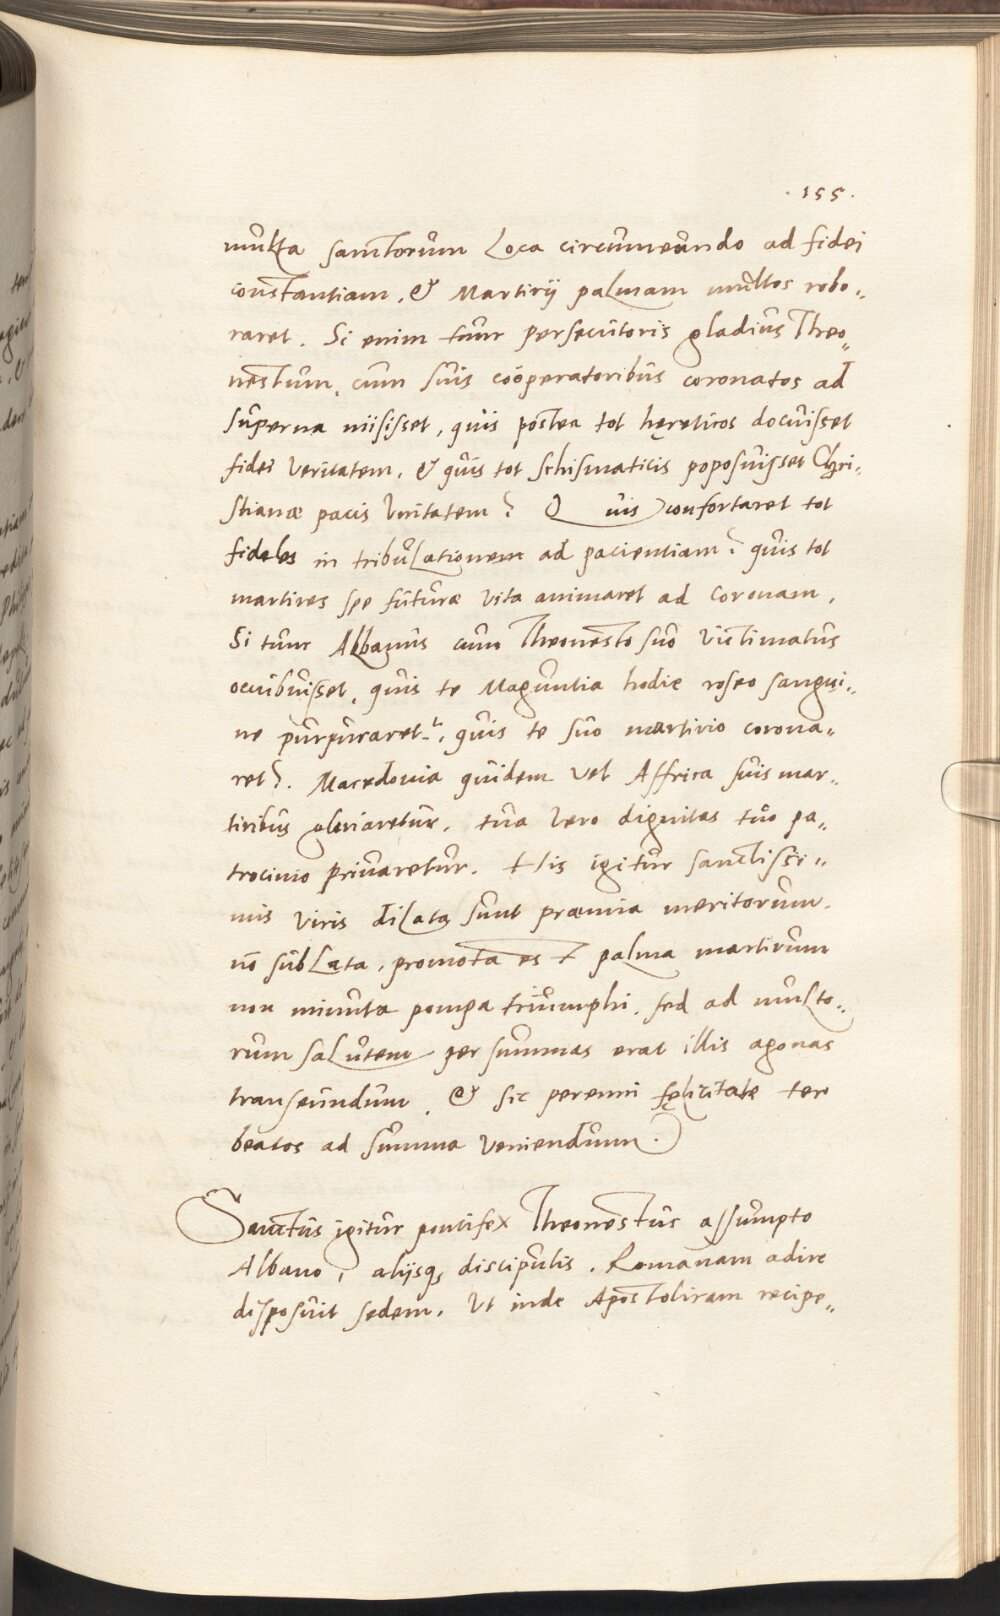 ·155·
multa sanctorum Loca circumeundo ad fidei
constantiam, & Martirij palmam multos robo„
raret. Si enim tunc persecutoris gladius Theo„
nestum, cum suis coóperatoribus coronatos ad
superna misisset, quis postea tot hęreticos docuisset
fidei veritatem, & quis tot schismaticis poposuisset Chri„
stianæ pacis Vnitatem? Quis confortaret tot
fideles in tribulationem ad pacientiam? quis tot
martires spe futuræ vita animaret ad Coronam,
Si tunc Albanus cum Theonesto suo Victimatus
occubuisset, quis te Maguntia hodie roseo sangui„
ne purpuraret, quis te suo martirio corona„
ret?. Macedonia quidem vel Affrica suis mar„
tiribus gloriaretur, tua Vero dignitas tuo pa„
trocinio priuaretur. His igitur sanctissi„
mis Viris dilata sunt præmia meritorum,
nõ sublata, promota es t palma martirum
non minuta pompa triumphi, sed ad multo„
rum salutem per summas erat illis agonas
transeundum, & sic perenni fęlicitate ter
beatos ad summa Veniendum.
Sanctus igitur pontifex Theonestus assumpto
Albano, alijsq, discipulis, Romanam adire
disposuit sedem, Vt inde Apostolicam recipe„